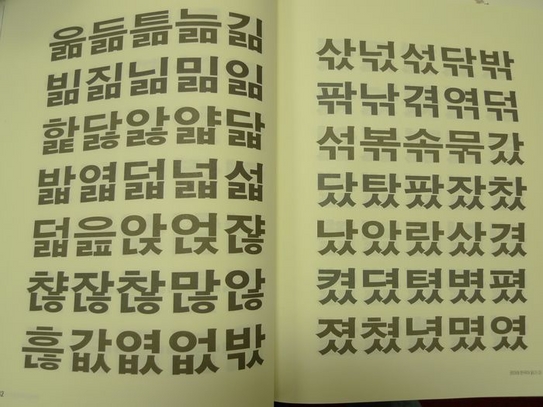 욺듦틂늚긺
빎짊닒밂읾
핥닳앓얇닯
밟엷덟넓섧
덟읊앉얹쟎
챦잖찮많않
흖값엾없밗
삯넋섟닦밖
팎낚겪엮덖
섞볶솎묶갔
닸탔팠잤찼
났았랐샀겼
켰뎠텼볐폈
졌쳤녔몄였